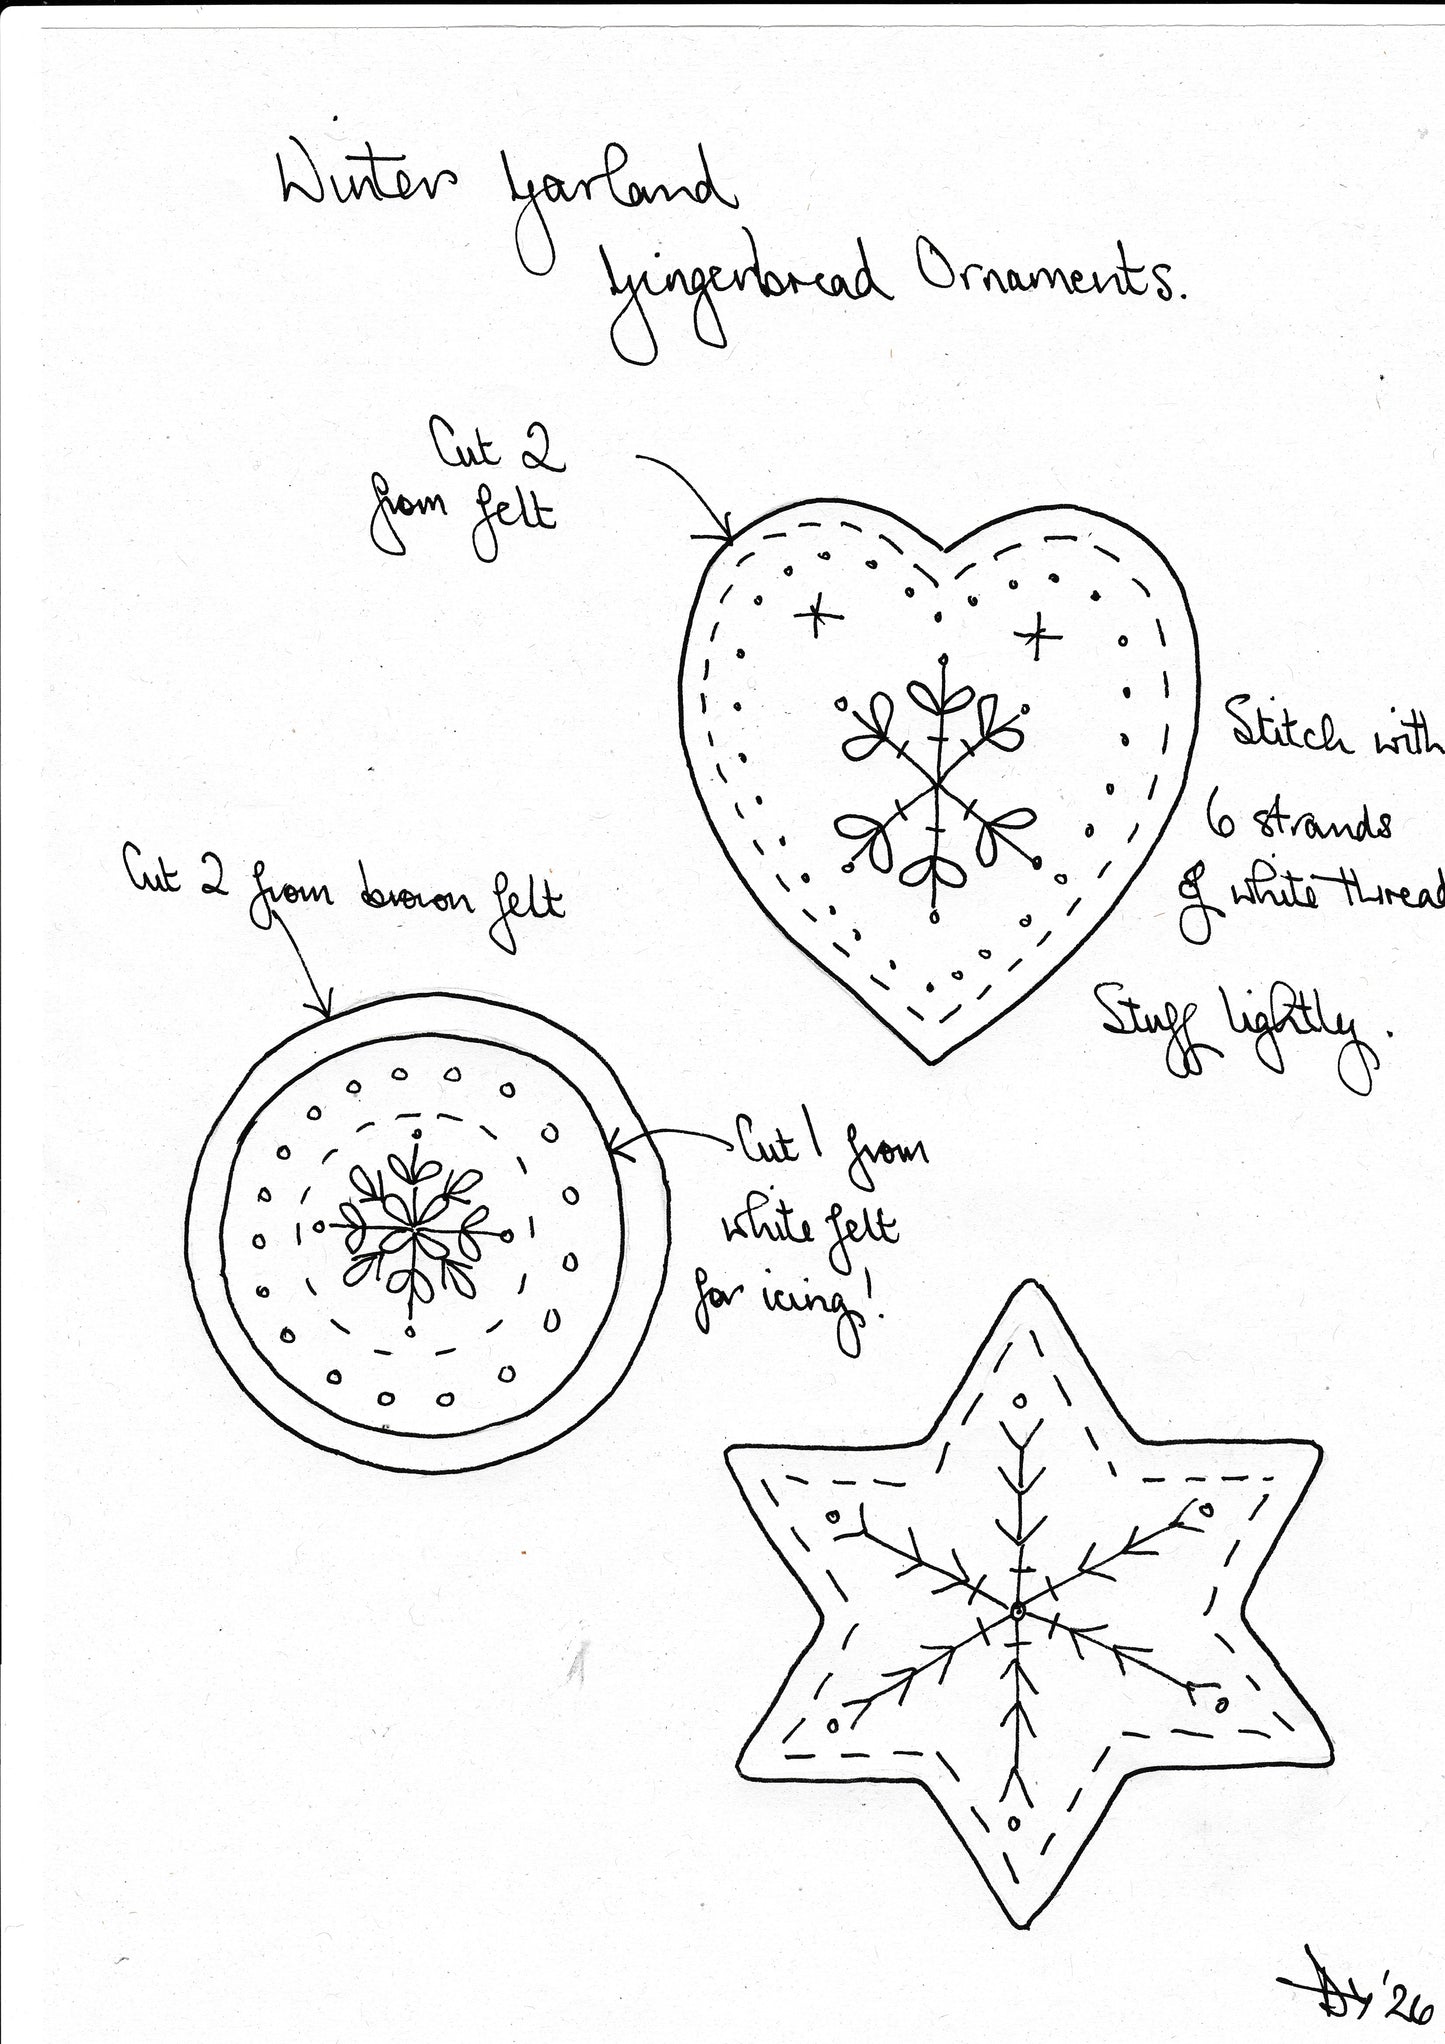 Winter Garland
Gingerbread Ornaments.
Cut 2
from felt
Stitch with
6 strands
of white thread
Stuff lightly.
Cut 2 from brown felt
Cut 1 from
white felt
for icing!
'26